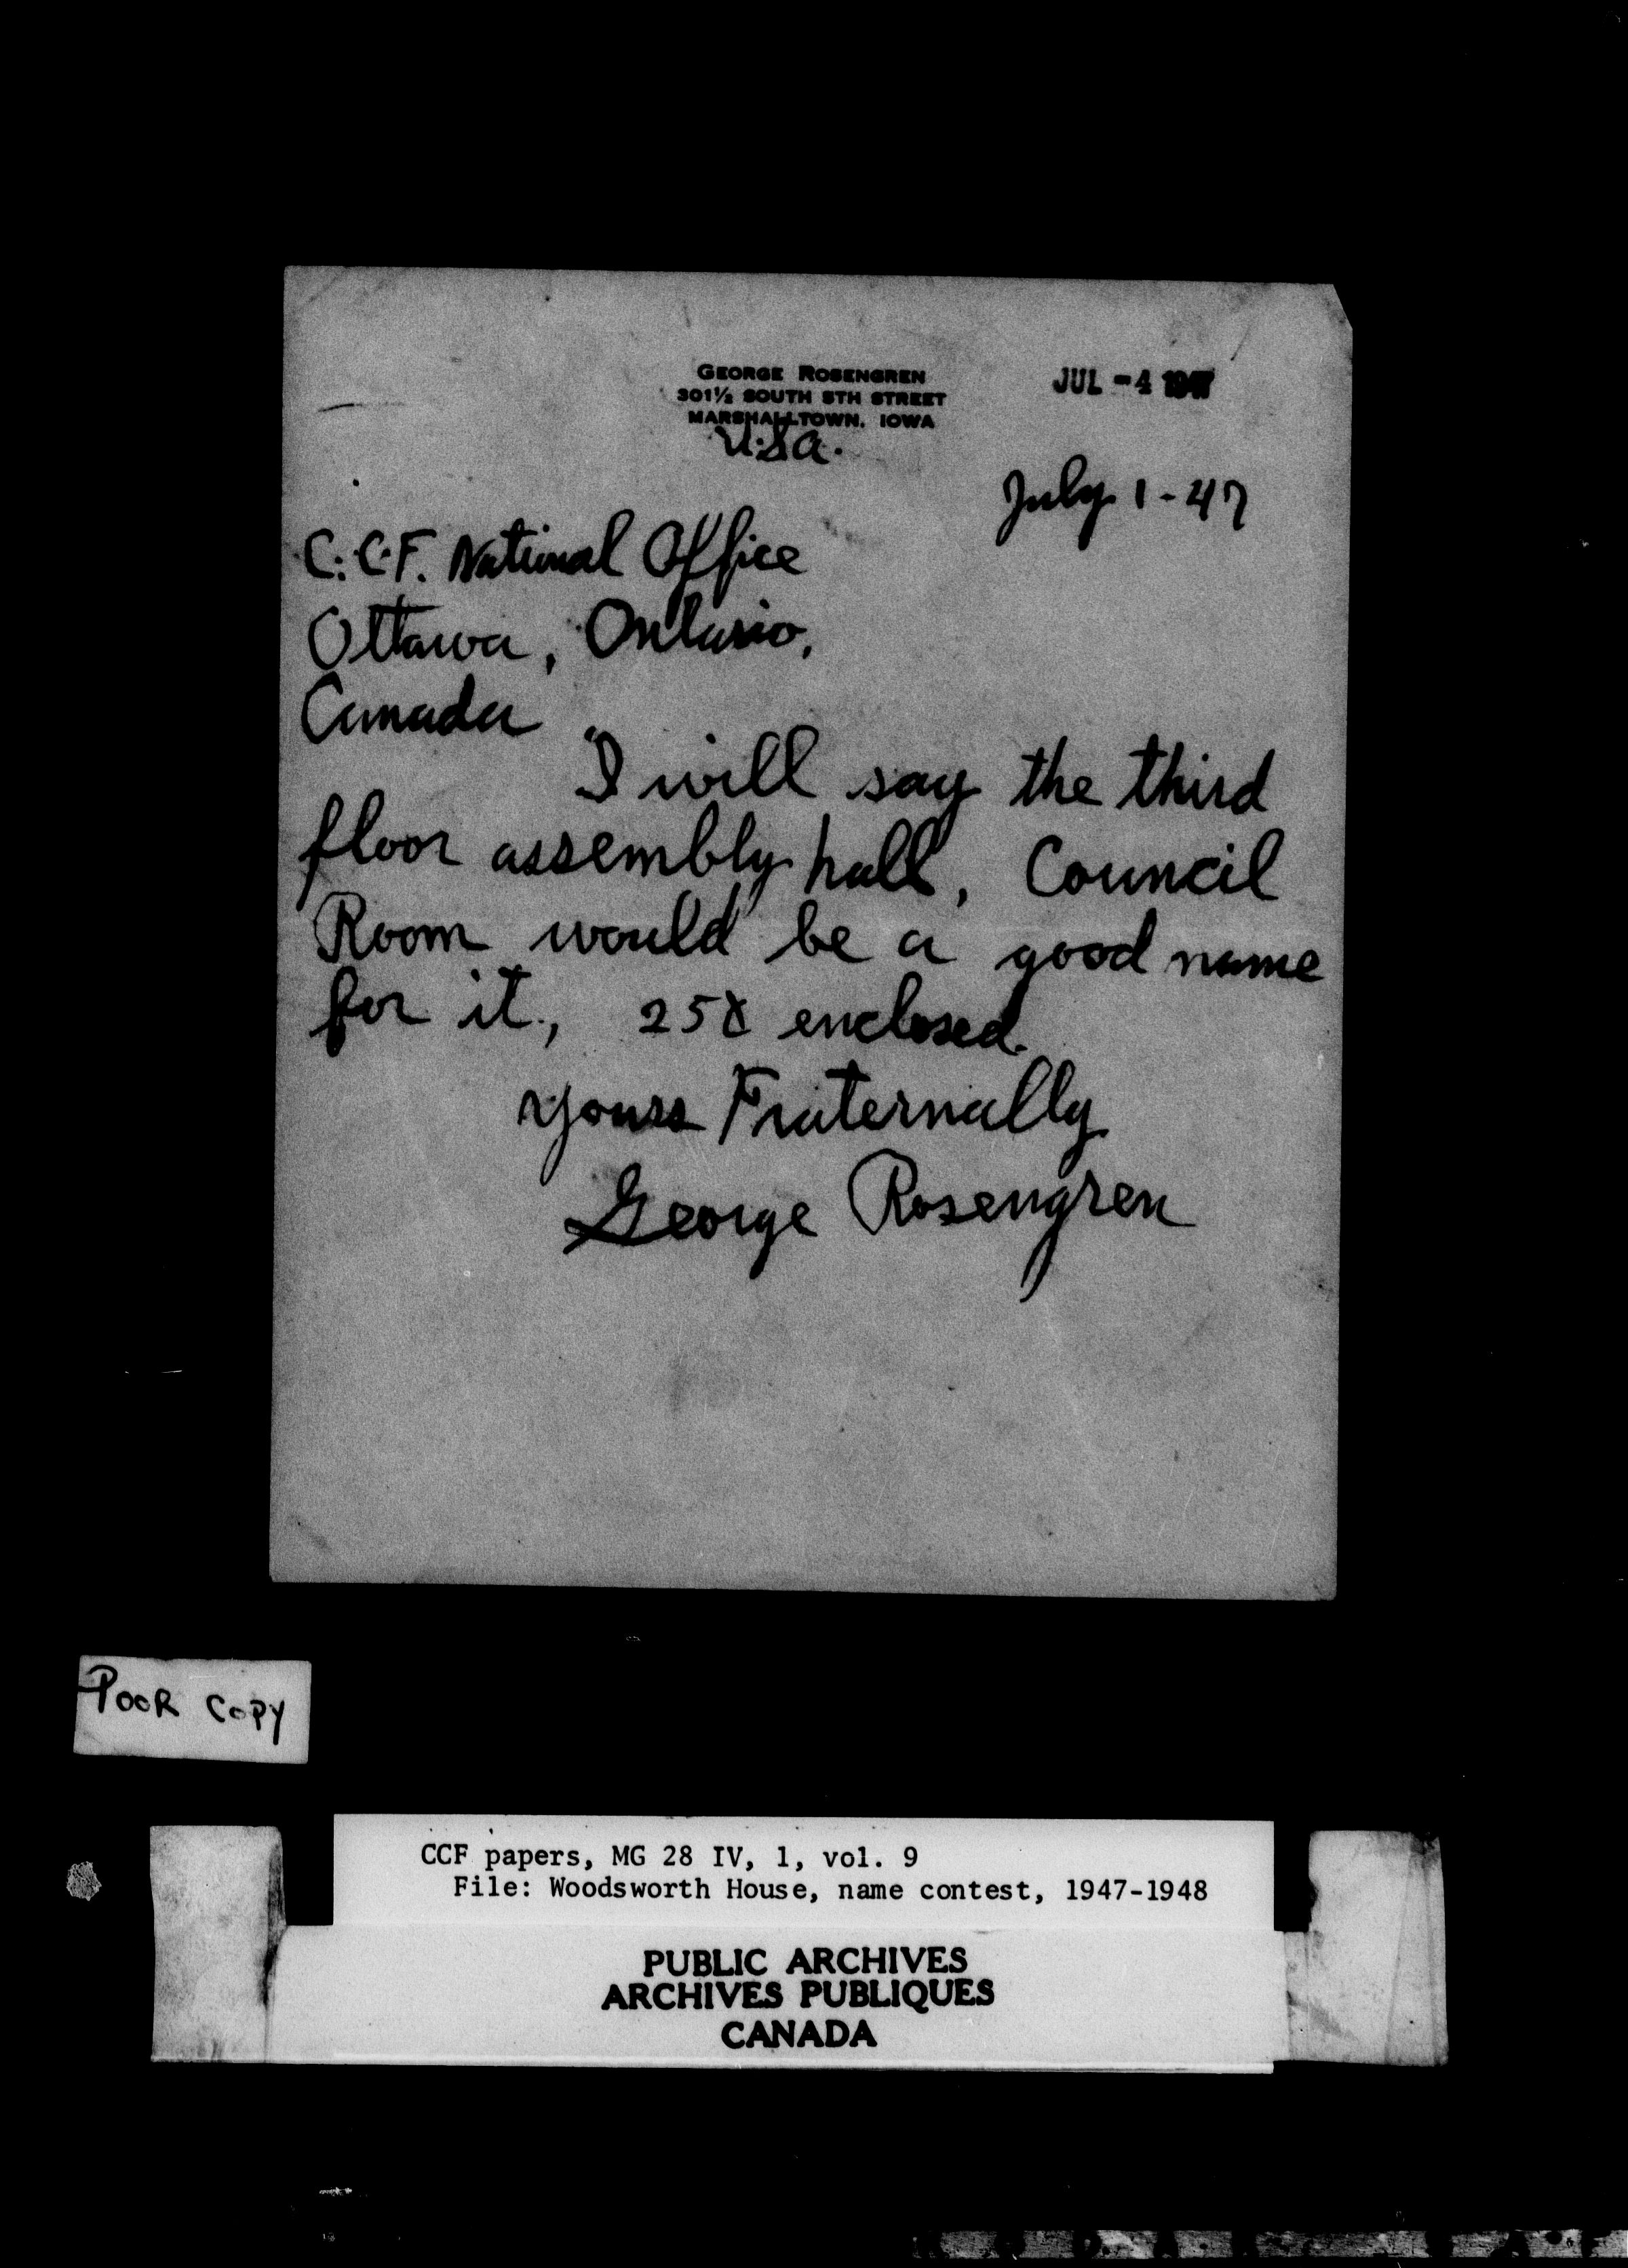 GEORGE ROSENGREN
301½ SOUTH 5TH STREET
MARSHALLTOWN, IOWA
U.S.A.
JUL -4 1947
July 1-47
C.C.F. National Office
Ottawa, Ontario,
Canada
I will say the third
floor assembly hall, Council
Room would be a good name
for it, 25¢ enclosed.
Yours Fraternally
George Rosengren
POOR COPY
CCF papers, MG 28 IV, 1, vol. 9
File: Woodsworth House, name contest, 1947-1948
PUBLIC ARCHIVES
ARCHIVES PUBLIQUES
CANADA